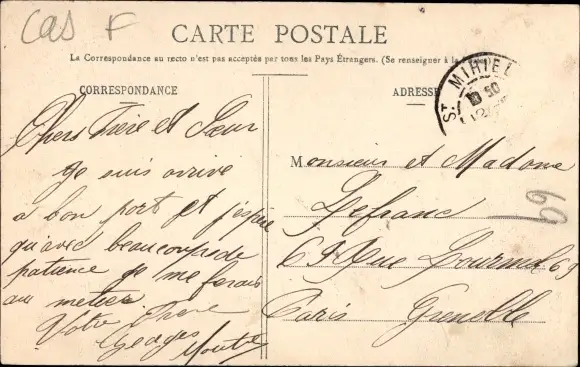 Cas F
CARTE POSTALE
La Correspondance au recto n'est pas acceptée par tous les Pays Étrangers. (Se renseigner à la Poste)
CORRESPONDANCE
Chers Frère et Sœur
Je suis arrivé
a bon port et j'espère
qu'avec beaucoup de
patience je me ferais
au metier.
Votre Frere
Georges
ADRESSE
ST MIHIEL
Monsieur et Madame
Lefranc
69 Rue 69
Paris Grenelle
69